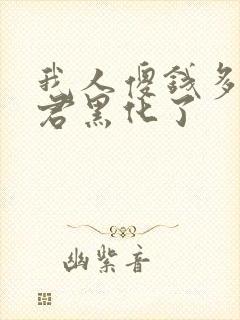 我人傻钱多
君黑化了
幽紫音